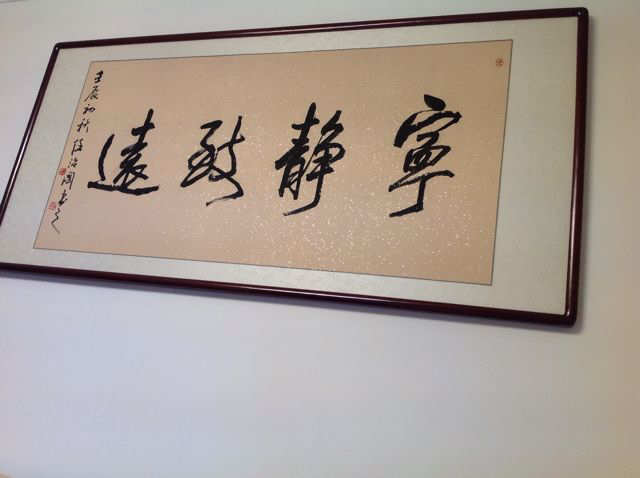 寧静致遠
壬辰初秋